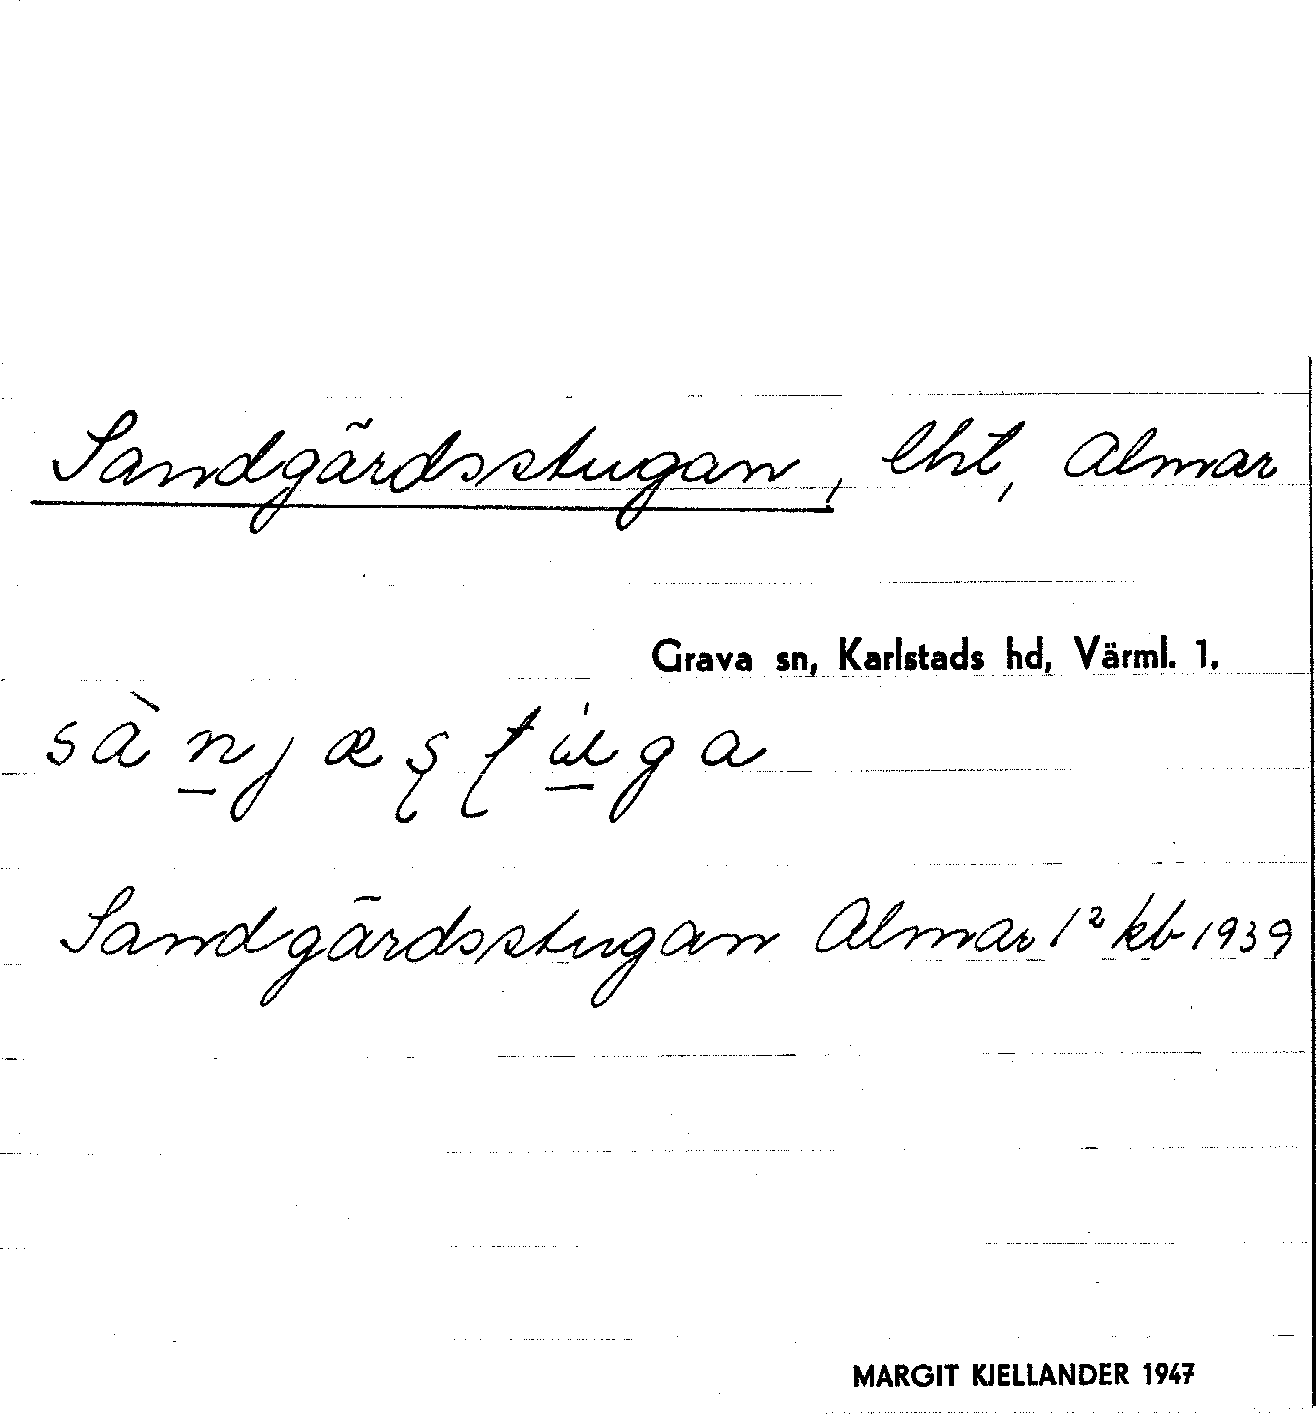 Sandgärdsstugan, lht, Almar
Grava sn, Karlstads hd, Värml. 1.
Sandgärdsstugan Almar 1² kb 1939
MARGIT KJELLANDER 1947